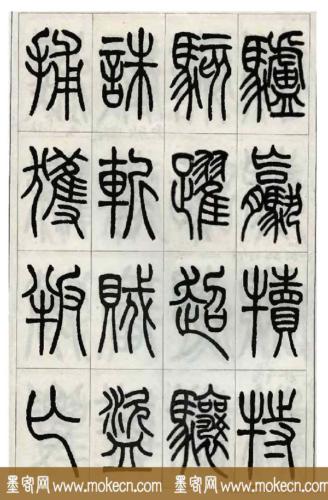 驢驘犢特
駭躍超驤
誅斬賊盜
捕獲叛亡
墨客网 www.mokecn.com 墨客网 www.mokecn.com